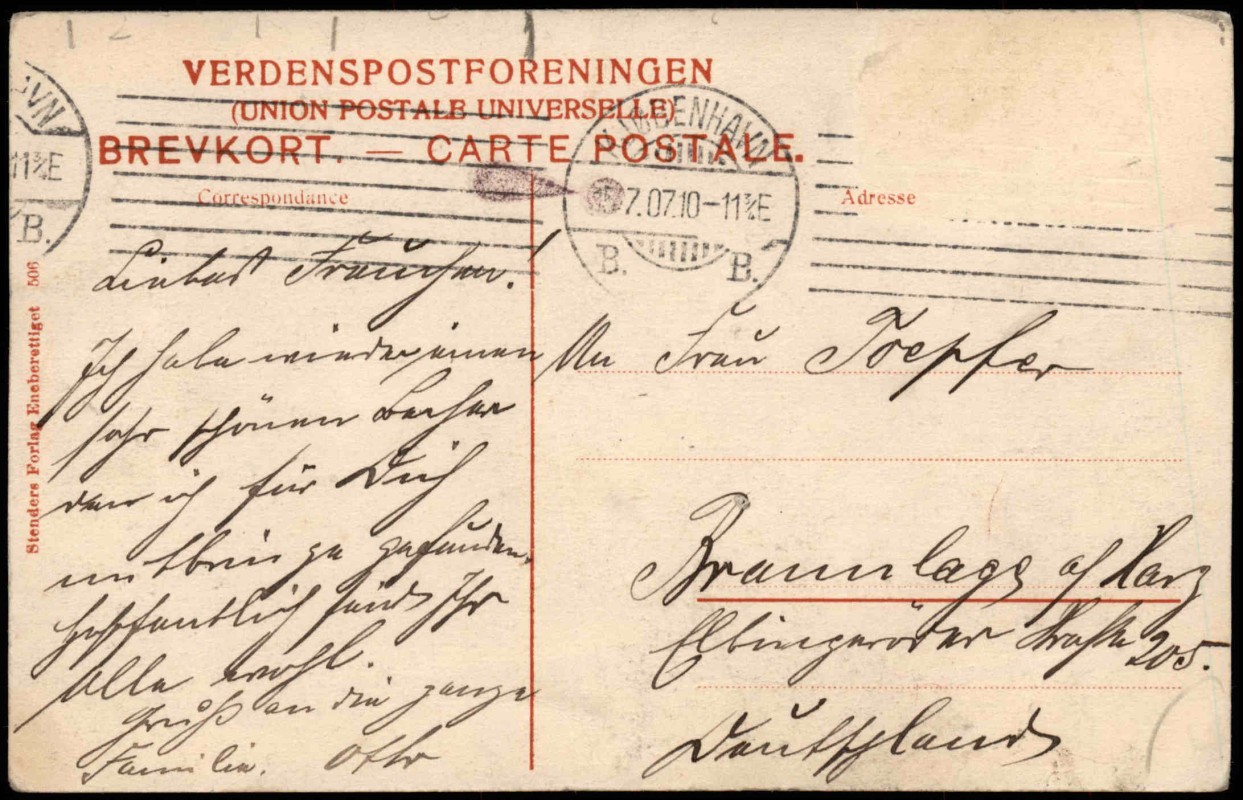 VERDENSPOSTFORENINGEN
(UNION POSTALE UNIVERSELLE)
BREVKORT. — CARTE POSTALE.
Correspondance
Adresse
KJØBENHAVN
7.07.10-11¾E
B. B.
VN
11¾E
B.
Stenders Forlag Eneberettiget 506
Liebes Frauchen!
Ich habe wieder einen
sehr schönen Becher
den ich für Dich
mitbringe gefunden.
Hoffentlich seid Ihr
Alle wohl.
Gruß an die ganze
Familie. Otto
An Frau Toepfer
Braunlage a/Harz
Elbingeröder Straße 205.
Deutschland